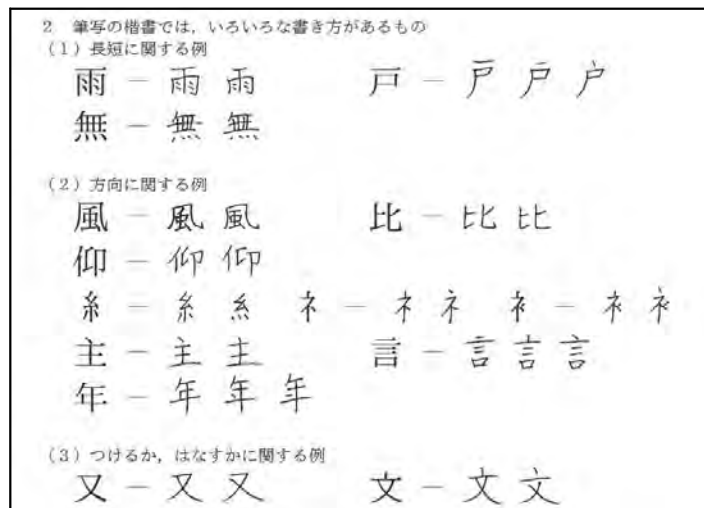 2 筆写の楷書では，いろいろな書き方があるもの
（1）長短に関する例
雨 － 雨 雨 戸 － 戸 戸 戸
無 － 無 無
（2）方向に関する例
風 － 風 風 比 － 比 比
仰 － 仰 仰
糹 － 糹 糹 礻 － 礻 礻 衤 － 衤 衤
主 － 主 主 言 － 言 言 言
年 － 年 年 年
（3）つけるか，はなすかに関する例
又 － 又 又 文 － 文 文